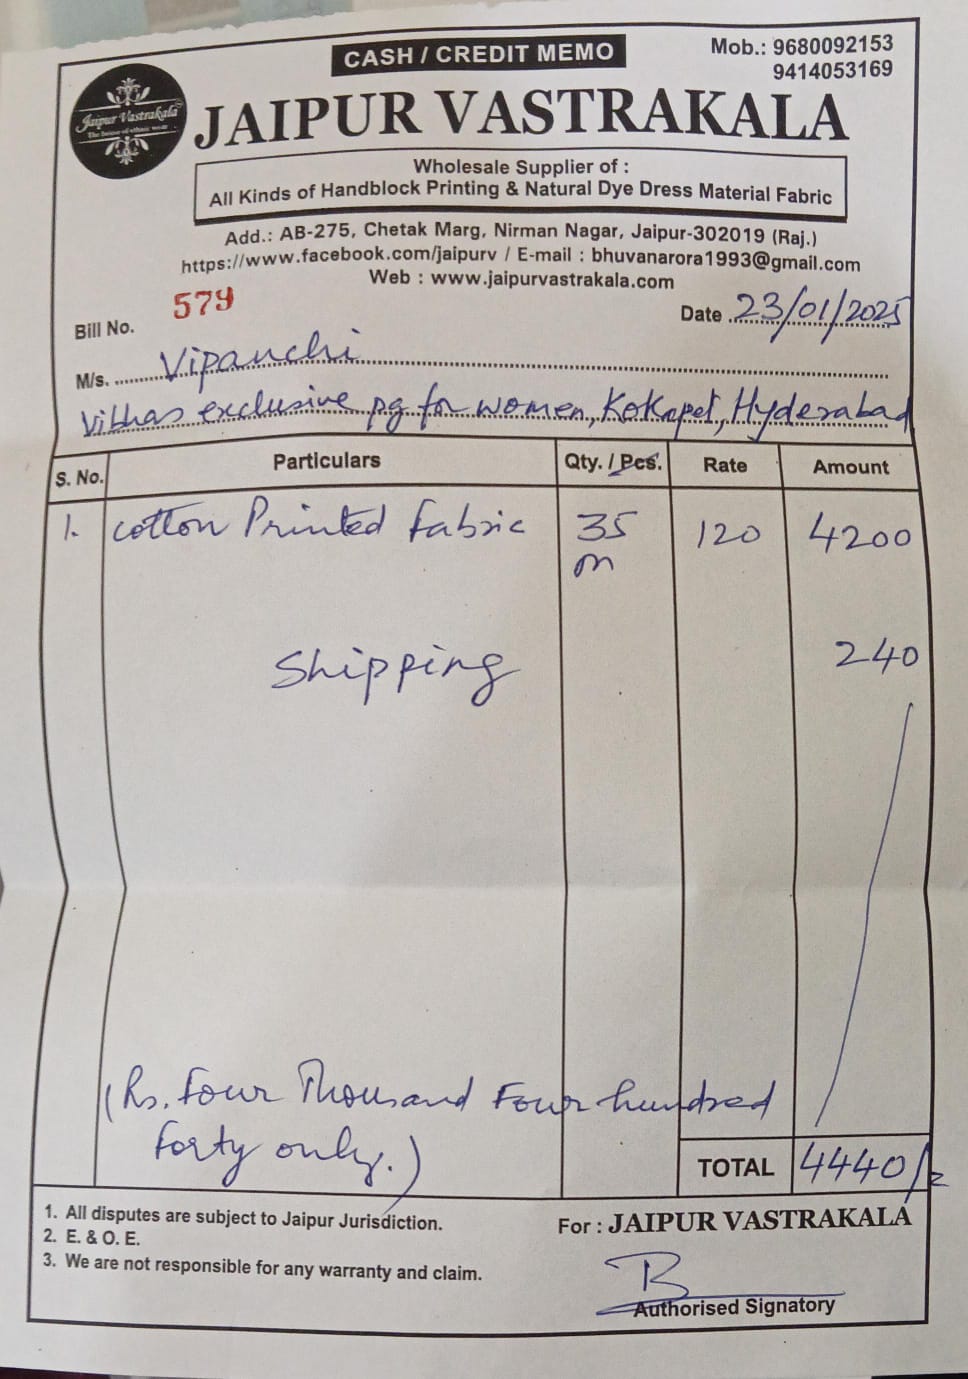 CASH / CREDIT MEMO
Mob.: 9680092153
9414053169
Jaipur Vastrakala
JAIPUR VASTRAKALA
Wholesale Supplier of :
All Kinds of Handblock Printing & Natural Dye Dress Material Fabric
Add.: AB-275, Chetak Marg, Nirman Nagar, Jaipur-302019 (Raj.)
https://www.facebook.com/jaipurv / E-mail : bhuvanarora1993@gmail.com
Web : www.jaipurvastrakala.com
Bill No. 579 Date 23/01/2025
M/s. Vipanchi
Vibhas exclusive pg for women, Kokapet, Hyderabad
S. No. Particulars Qty. / Pcs. Rate Amount
1. cotton Printed fabric 35 m 120 4200
Shipping 240
(Rs. Four Thousand Four hundred
forty only.)
TOTAL 4440/-
1. All disputes are subject to Jaipur Jurisdiction.
2. E. & O. E.
3. We are not responsible for any warranty and claim.
For : JAIPUR VASTRAKALA
Authorised Signatory